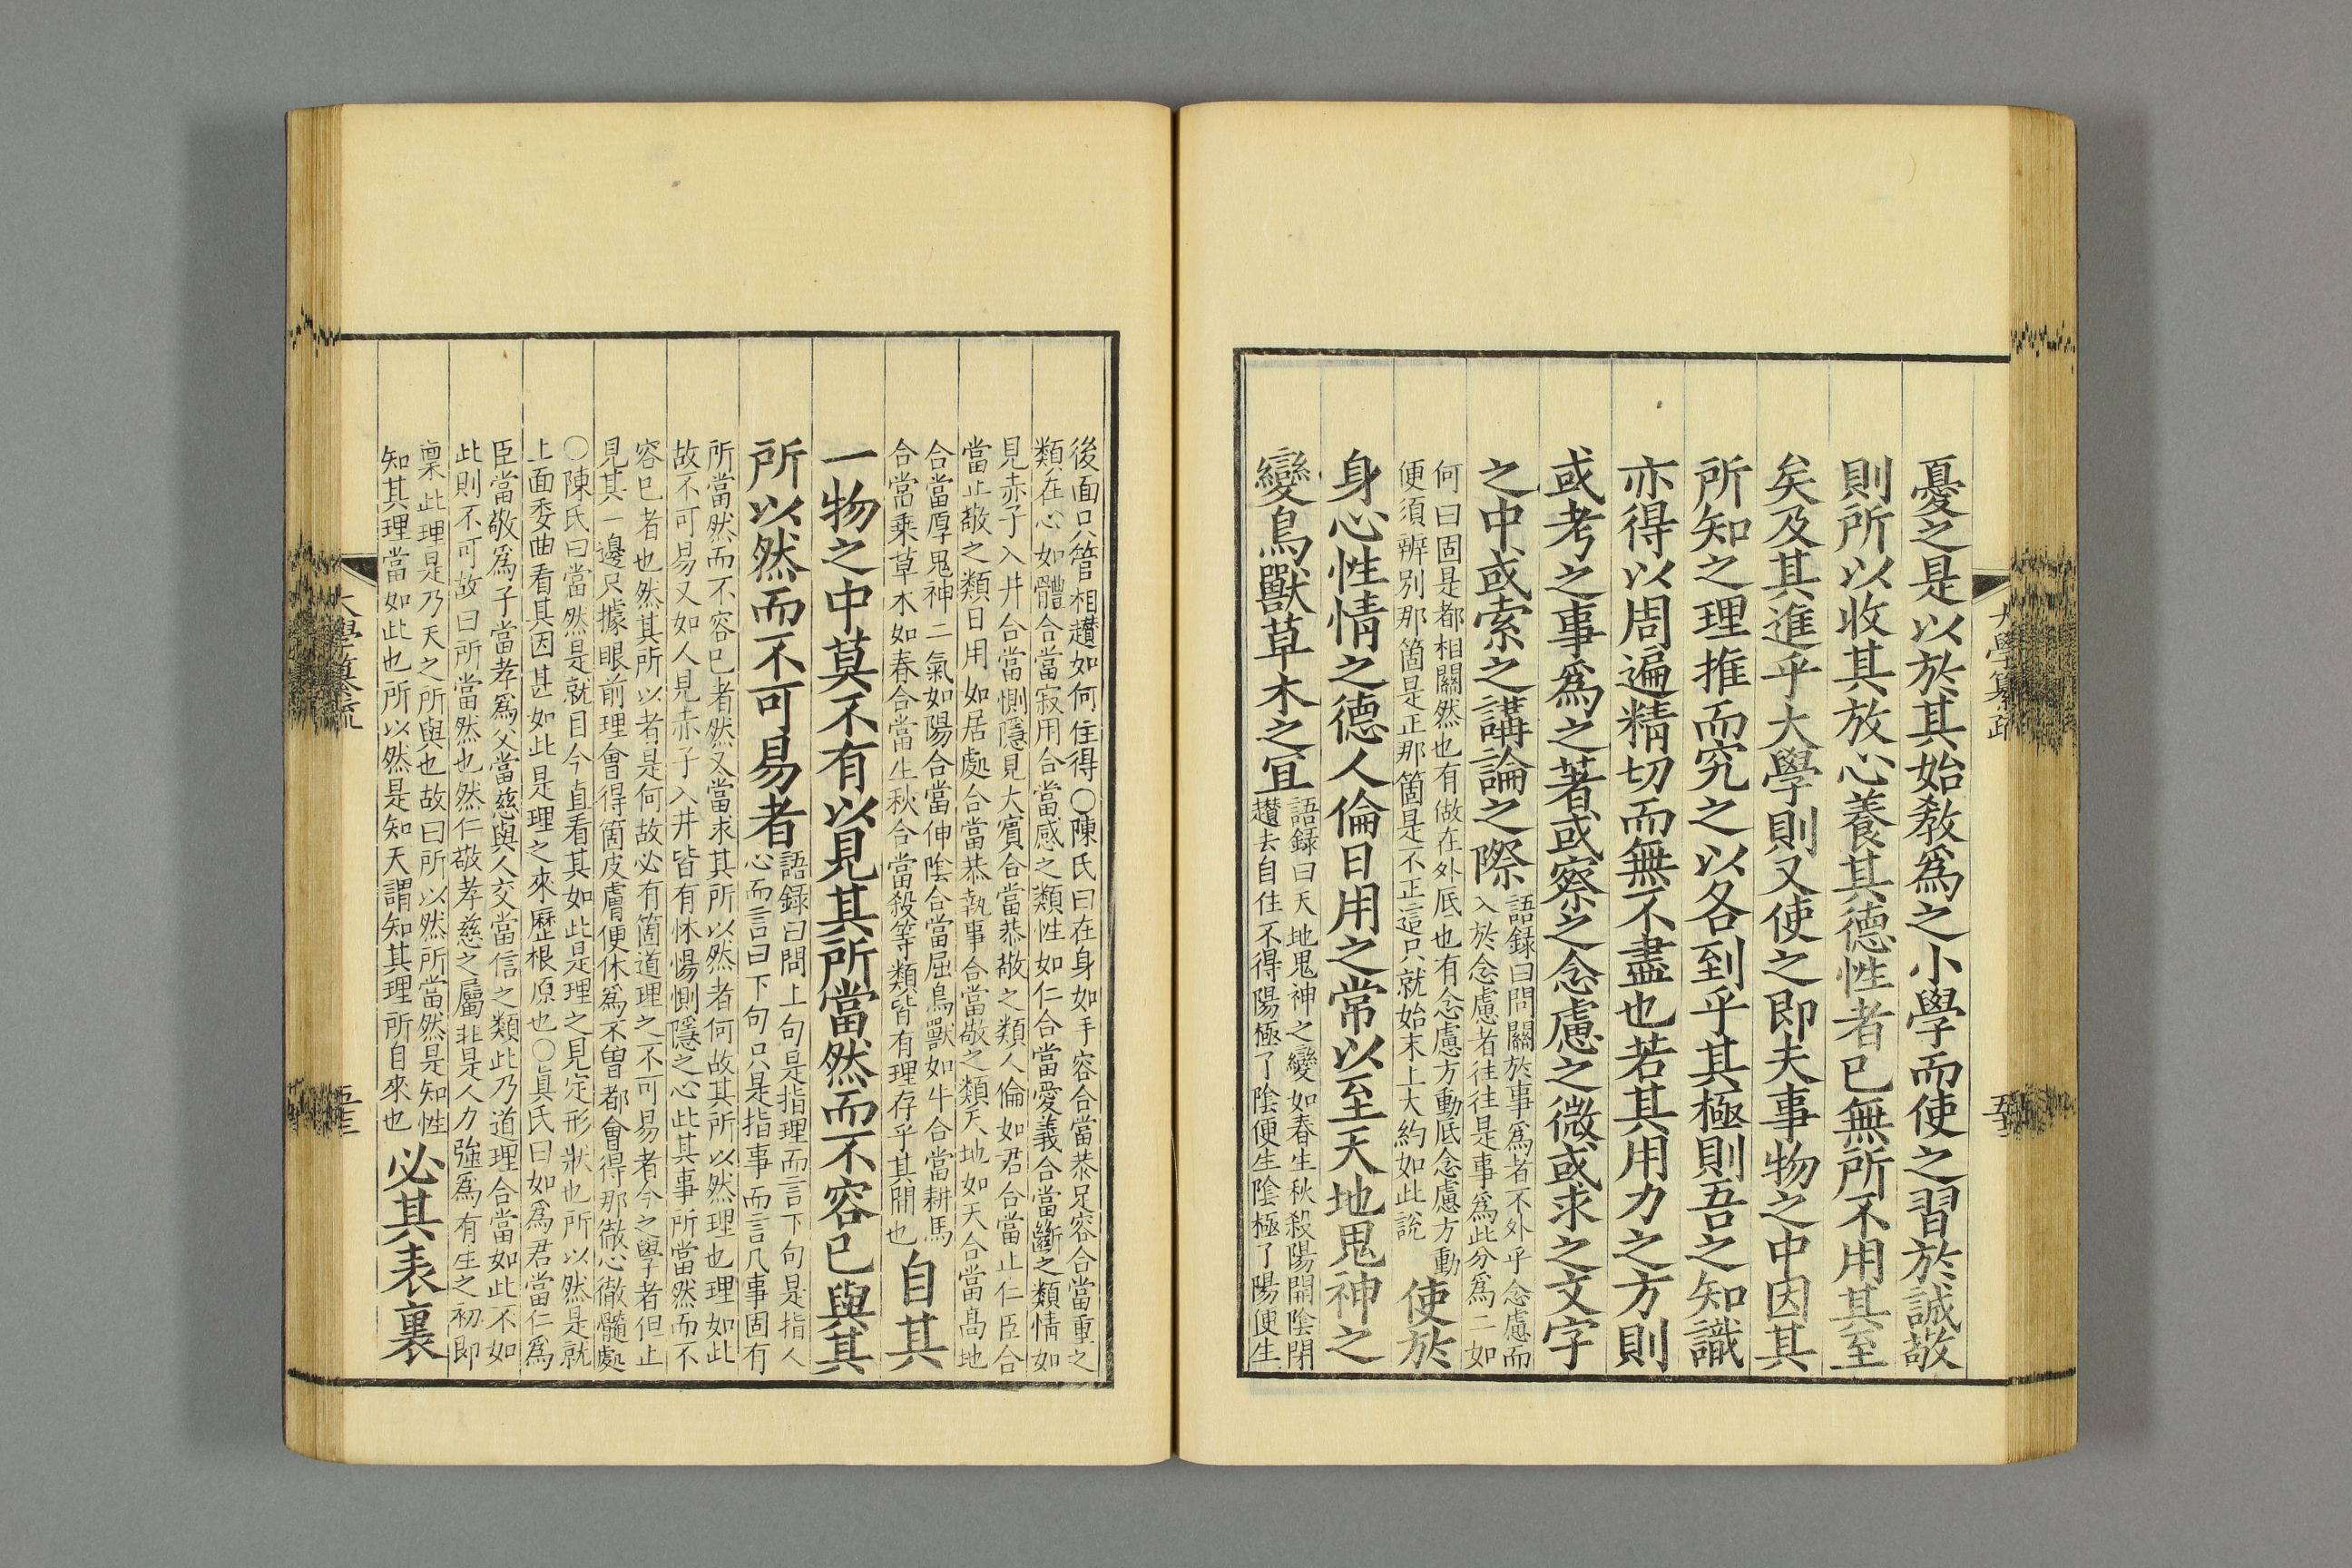 憂之是以於其始教爲之小學而使之習於誠敬
則所以收其放心養其德性者已無所不用其至
矣及其進乎大學則又使之即夫事物之中因其
所知之理推而究之以各到乎其極則吾之知識
亦得以周遍精切而無不盡也若其用力之方則
或考之事爲之著或察之念慮之微或求之文字
之中或索之講論之際
語録曰問關於事爲者不外乎念慮而
入於念慮者往往是事爲此分爲二如
何曰固是都相關然也有做在外底也有念慮方動底念慮方動
便須辨別那箇是正那箇是不正這只就始末上大約如此説
使於
身心性情之德人倫日用之常以至天地鬼神之
變鳥獸草木之宜
語録曰天地鬼神之變如春生秋殺陽開陰閉
趲去自住不得陽極了陰便生陰極了陽便生
大學纂疏
後面只管相趲如何住得○陳氏曰在身如手容合當恭足容合當重之
類在心如體合當寂用合當感之類性如仁合當愛義合當斷之類情如
見赤子入井合當惻隱見大賓合當恭敬之類人倫如君合當止仁臣合
當止敬之類日用如居處合當恭執事合當敬之類天地如天合當高地
合當厚鬼神二氣如陽合當伸陰合當屈鳥獸如牛合當耕馬
合當乗草木如春合當生秋合當殺等類皆有理存乎其間也
自其
一物之中莫不有以見其所當然而不容已與其
所以然而不可易者
語録曰問上句是指理而言下句是指人
心而言曰下句只是指事而言凡事固有
所當然而不容已者然又當求其所以然者何故其所以然理也理如此
故不可易又如人見赤子入井皆有怵惕惻隱之心此其事所當然而不
容已者也然其所以者是何故必有箇道理之不可易者今之學者但止
見其一邊只據眼前理會得箇皮膚便休爲不曽都會得那徹心徹髓處
○陳氏曰當然是就目今直看其如此是理之見定形狀也所以然是就
上面委曲看其因甚如此是理之來歷根原也○眞氏曰如爲君當仁爲
臣當敬爲子當孝爲父當慈與人交當信之類此乃道理合當如此不如
此則不可故曰所當然也然仁敬孝慈之屬非是人力強爲有生之初即
禀此理是乃天之所與也故曰所以然所當然是知性
知其理當如此也所以然是知天謂知其理所自來也
必其表裏
大學纂疏
五三